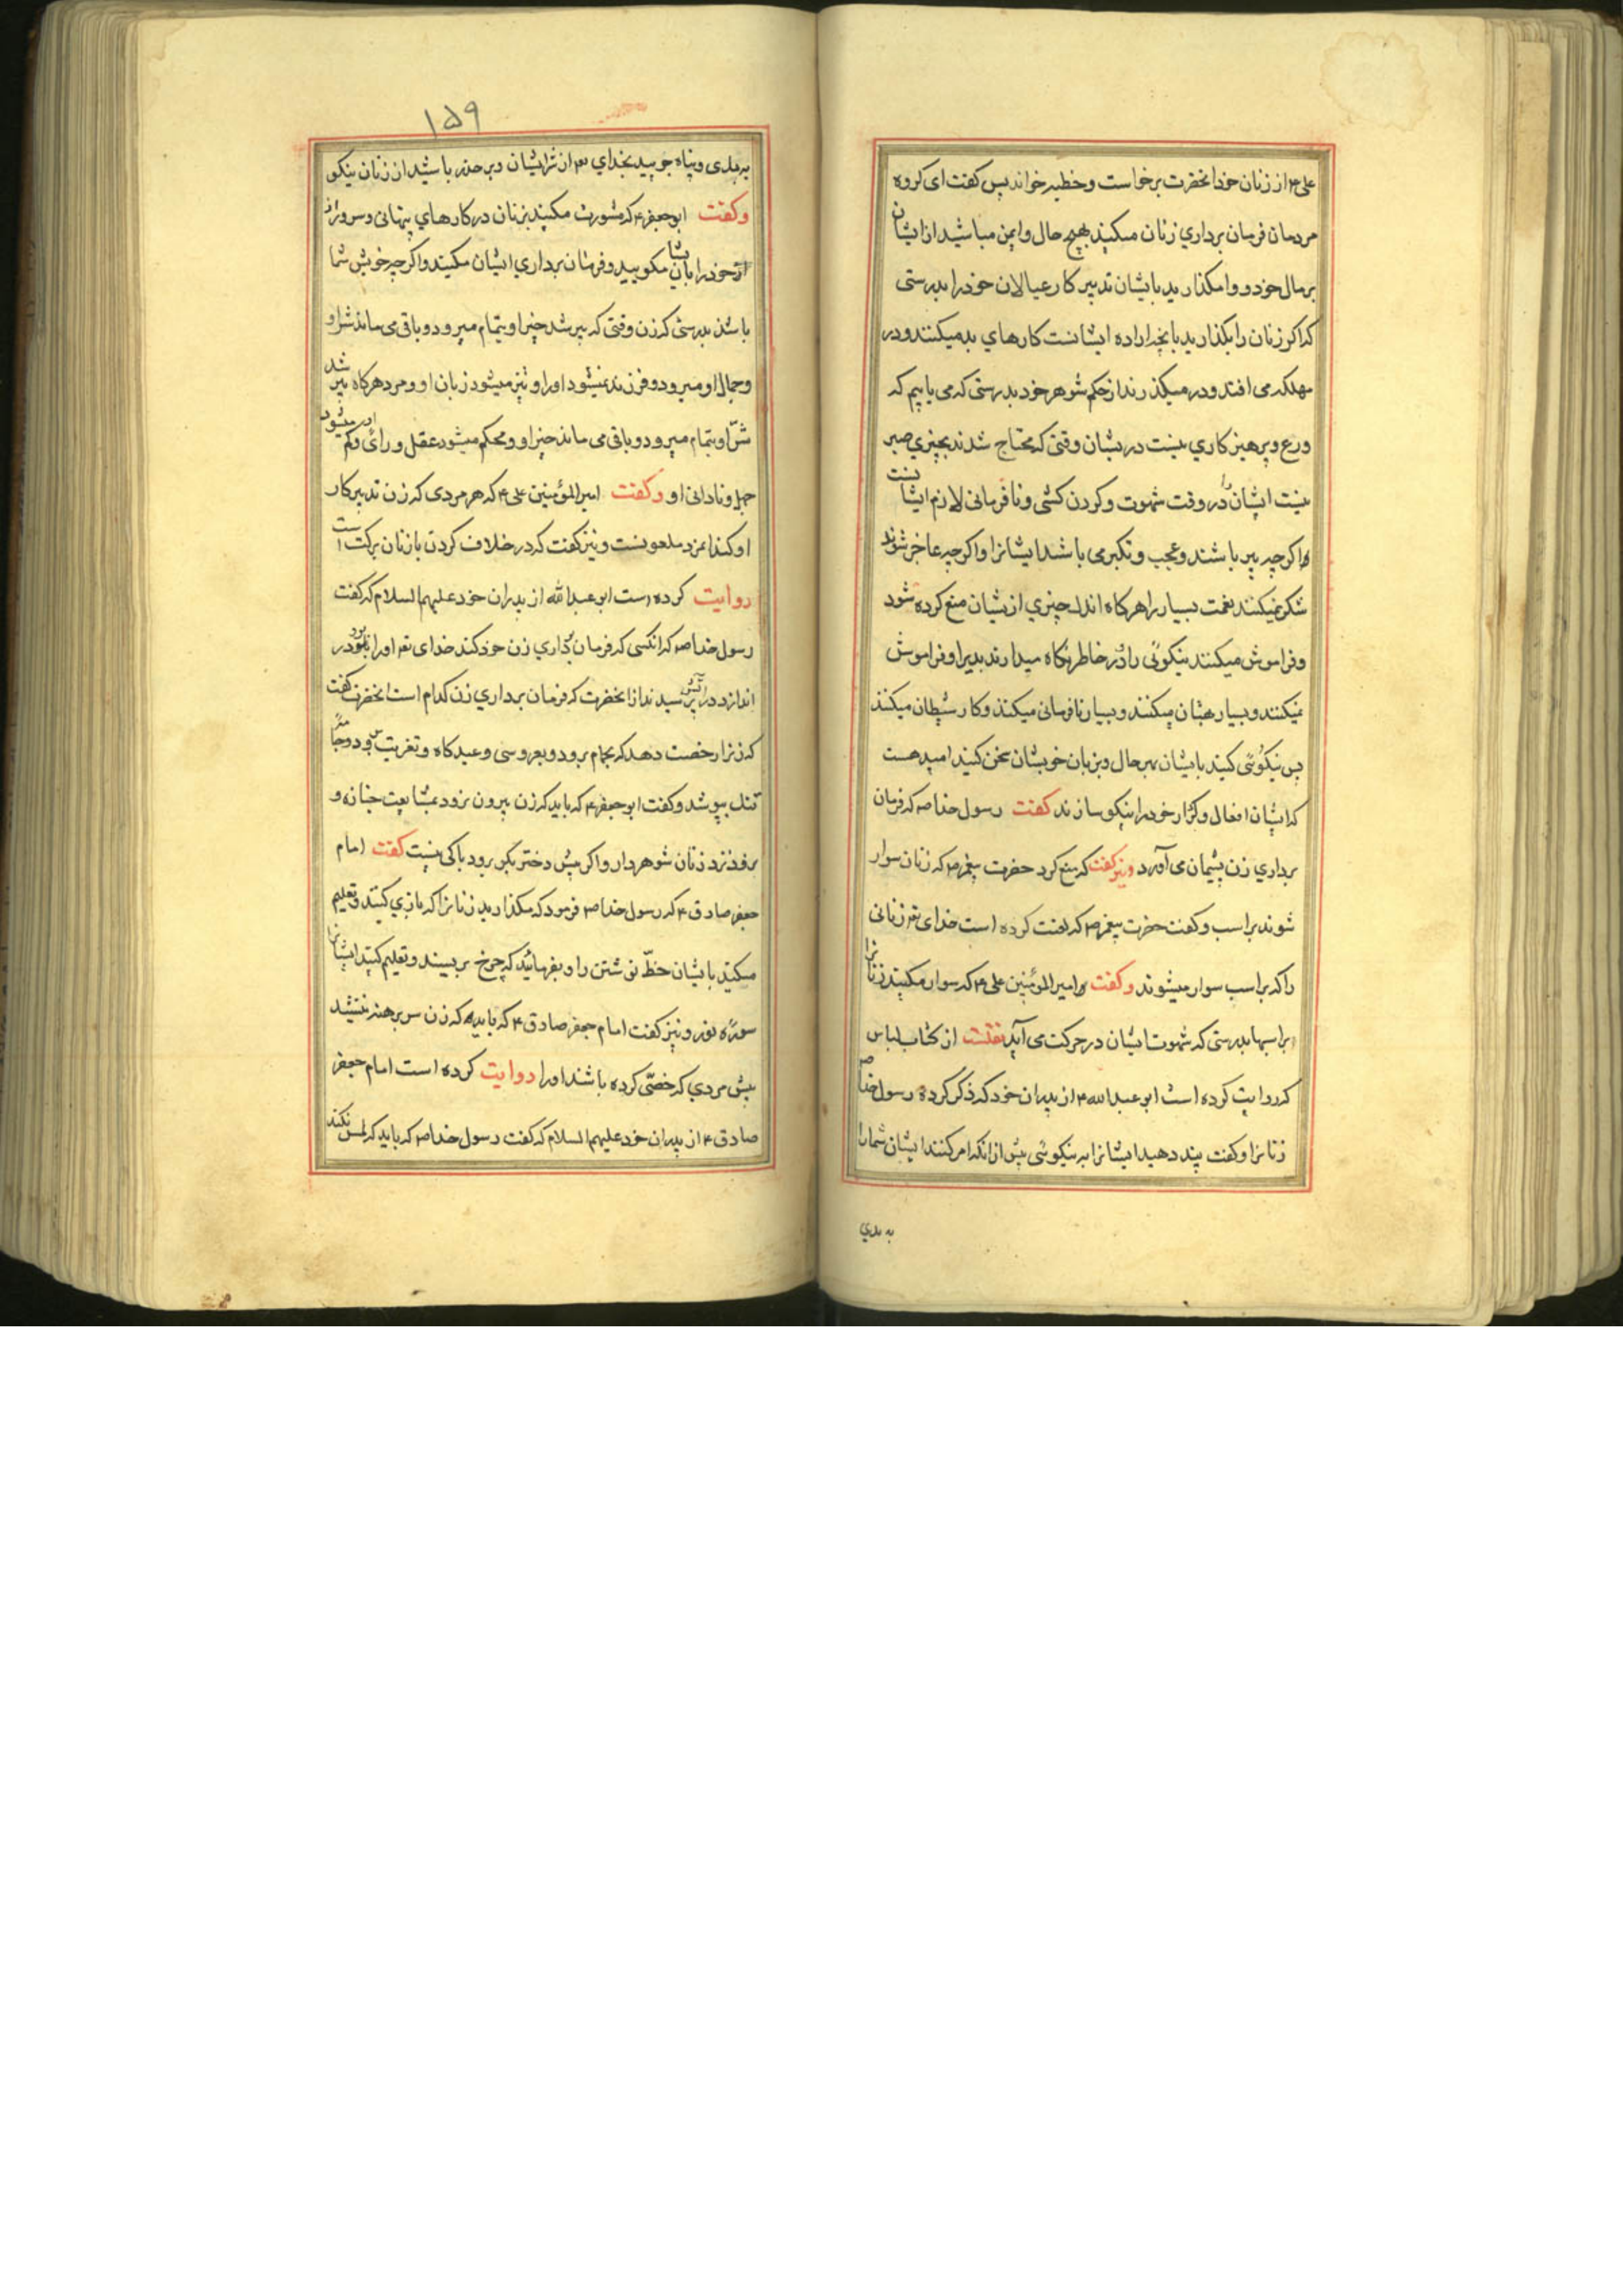 علی ۴ از زنان خود انحضرت برخواست و خطبه خواند پس کفت ای کروه
مردمان فرمان برداری زنان مکنید بهیچ حال و ایمن مباشید از ایشان
بر مال خود و وامکذارید بایشان تدبیر کار عیالان خود را بدرستی
که اکر زنان را بکذارید بانچه اراده ایشانست کارهای بد میکنند و در
مهلکه می افتند و در میکذرند از حکم شوهر خود بدرستی که می یابیم که
ورع و پرهیزکاری نیست در یشان وقتی که محتاج شدند بچیزی صبر
نیست ایشان را در وقت شهوت و کردن کشی و نافرمانی لازم ایشا نست
و اکرچه پیر باشند و عجب و تکبر می باشد ایشانرا و اکرچه عاجز شوند
شکر نمیکنند نعمت بسیار را هرکاه اندک چیزی از یشان منع کرده شود
و فراموش میکنند نیکوئی را و در خاطر نکاه میدارند بدیرا و فراموش
نمیکنند و بسیار بهتان میکنند و بسیار نافرمانی میکنند و کار شیطان میکنند
پس نیکوئی کنید بایشان بهرحال و بزبان خویشان سخن کنید امید هست
که ایشان افعال و کردار خود را نیکو سازند کفت رسول خدا صه که فرمان
برداری زن پشیمان می آورد و نیز کفت که منع کرد حضرت پیغمبر صه که زنان سوار
شوند بر اسب و کفت حضرت پیغمبر صه که لعنت کرده است خدای تعه زنانی
را که بر اسب سوار میشوند و کفت امیر المؤمنین علی ۴ که سوار مکنید زنا نرا
بر اسبها بدرستی که شهوت ایشان در حرکت می آید نقلست از کتاب لباس
که روایت کرده است ابو عبد الله ۴ از پدران خود که ذکر کرد رسول خدا صه
زنانرا و کفت پند دهید ایشانرا به نیکوئی پیش از انکه امر کنند ایشان شمارا
به بدی
۱۵۹
به بدی و پناه جویید بخدای تعه از شر ایشان و بر حذر باشید از زنان نیکو
و کفت ابو جعفر ۴ که مشورت مکنید بزنان در کارهای پنهانی و سر و راز
خود را بایشان مکویید و فرمان برداری ایشان مکنید و اکرچه خویش شما
باشند بدرستی که زن وقتی که پیر شد خیر او بتمام میرود و باقی می ماند شر او
و جمال او میرود و فرزند نمیشود او را و تیز میشود زبان او و مرد هرکاه پیر شد
شر او بتمام میرود و باقی می ماند خیر او و محکم میشود عقل و رای او و کم میشود
جهل و نادانی او و کفت امیر المؤمنین علی ۴ که هر مردی که زن تدبیر کار
او کند انمرد ملعونست و نیز کفت که در خلاف کردن با زنان برکت است
روایت کرده است ابو عبد الله از پدران خود علیهم السلام که کفت
رسول خدا صه که انکسی که فرمان برداری زن خود کند خدای تعه او را برو در
اندازد در آتش پرسیدند از انحضرت که فرمان برداری زن کدام است انحضرت کفت
که زنرا رخصت دهد که بحمام برود و بعروسی و عیدکاه و تعزیت برود و جامهٔ
تنک بپوشد و کفت ابو جعفر ۴ که باید که زن بیرون نرود بمشایعت جنازه و
نرود نزد زنان شوهر دار و اکر پیش دختر بکر برود باکی نیست کفت امام
جعفر صادق ۴ که رسول خدا صه فرمود که مکذارید زنانرا که بازی کنند و تعلیم
مکنید بایشان خط نوشتن را و بفرمائید که چرخ بریسند و تعلیم کنید ایشا نرا
سورهٔ نور و نیز کفت امام جعفر صادق ۴ که باید که زن سر برهنه ننشیند
پیش مردی که خصّی کرده باشند او را روایت کرده است امام جعفر
صادق ۴ از پدران خود علیهم السلام که کفت رسول خدا صه که باید که لمس نکند